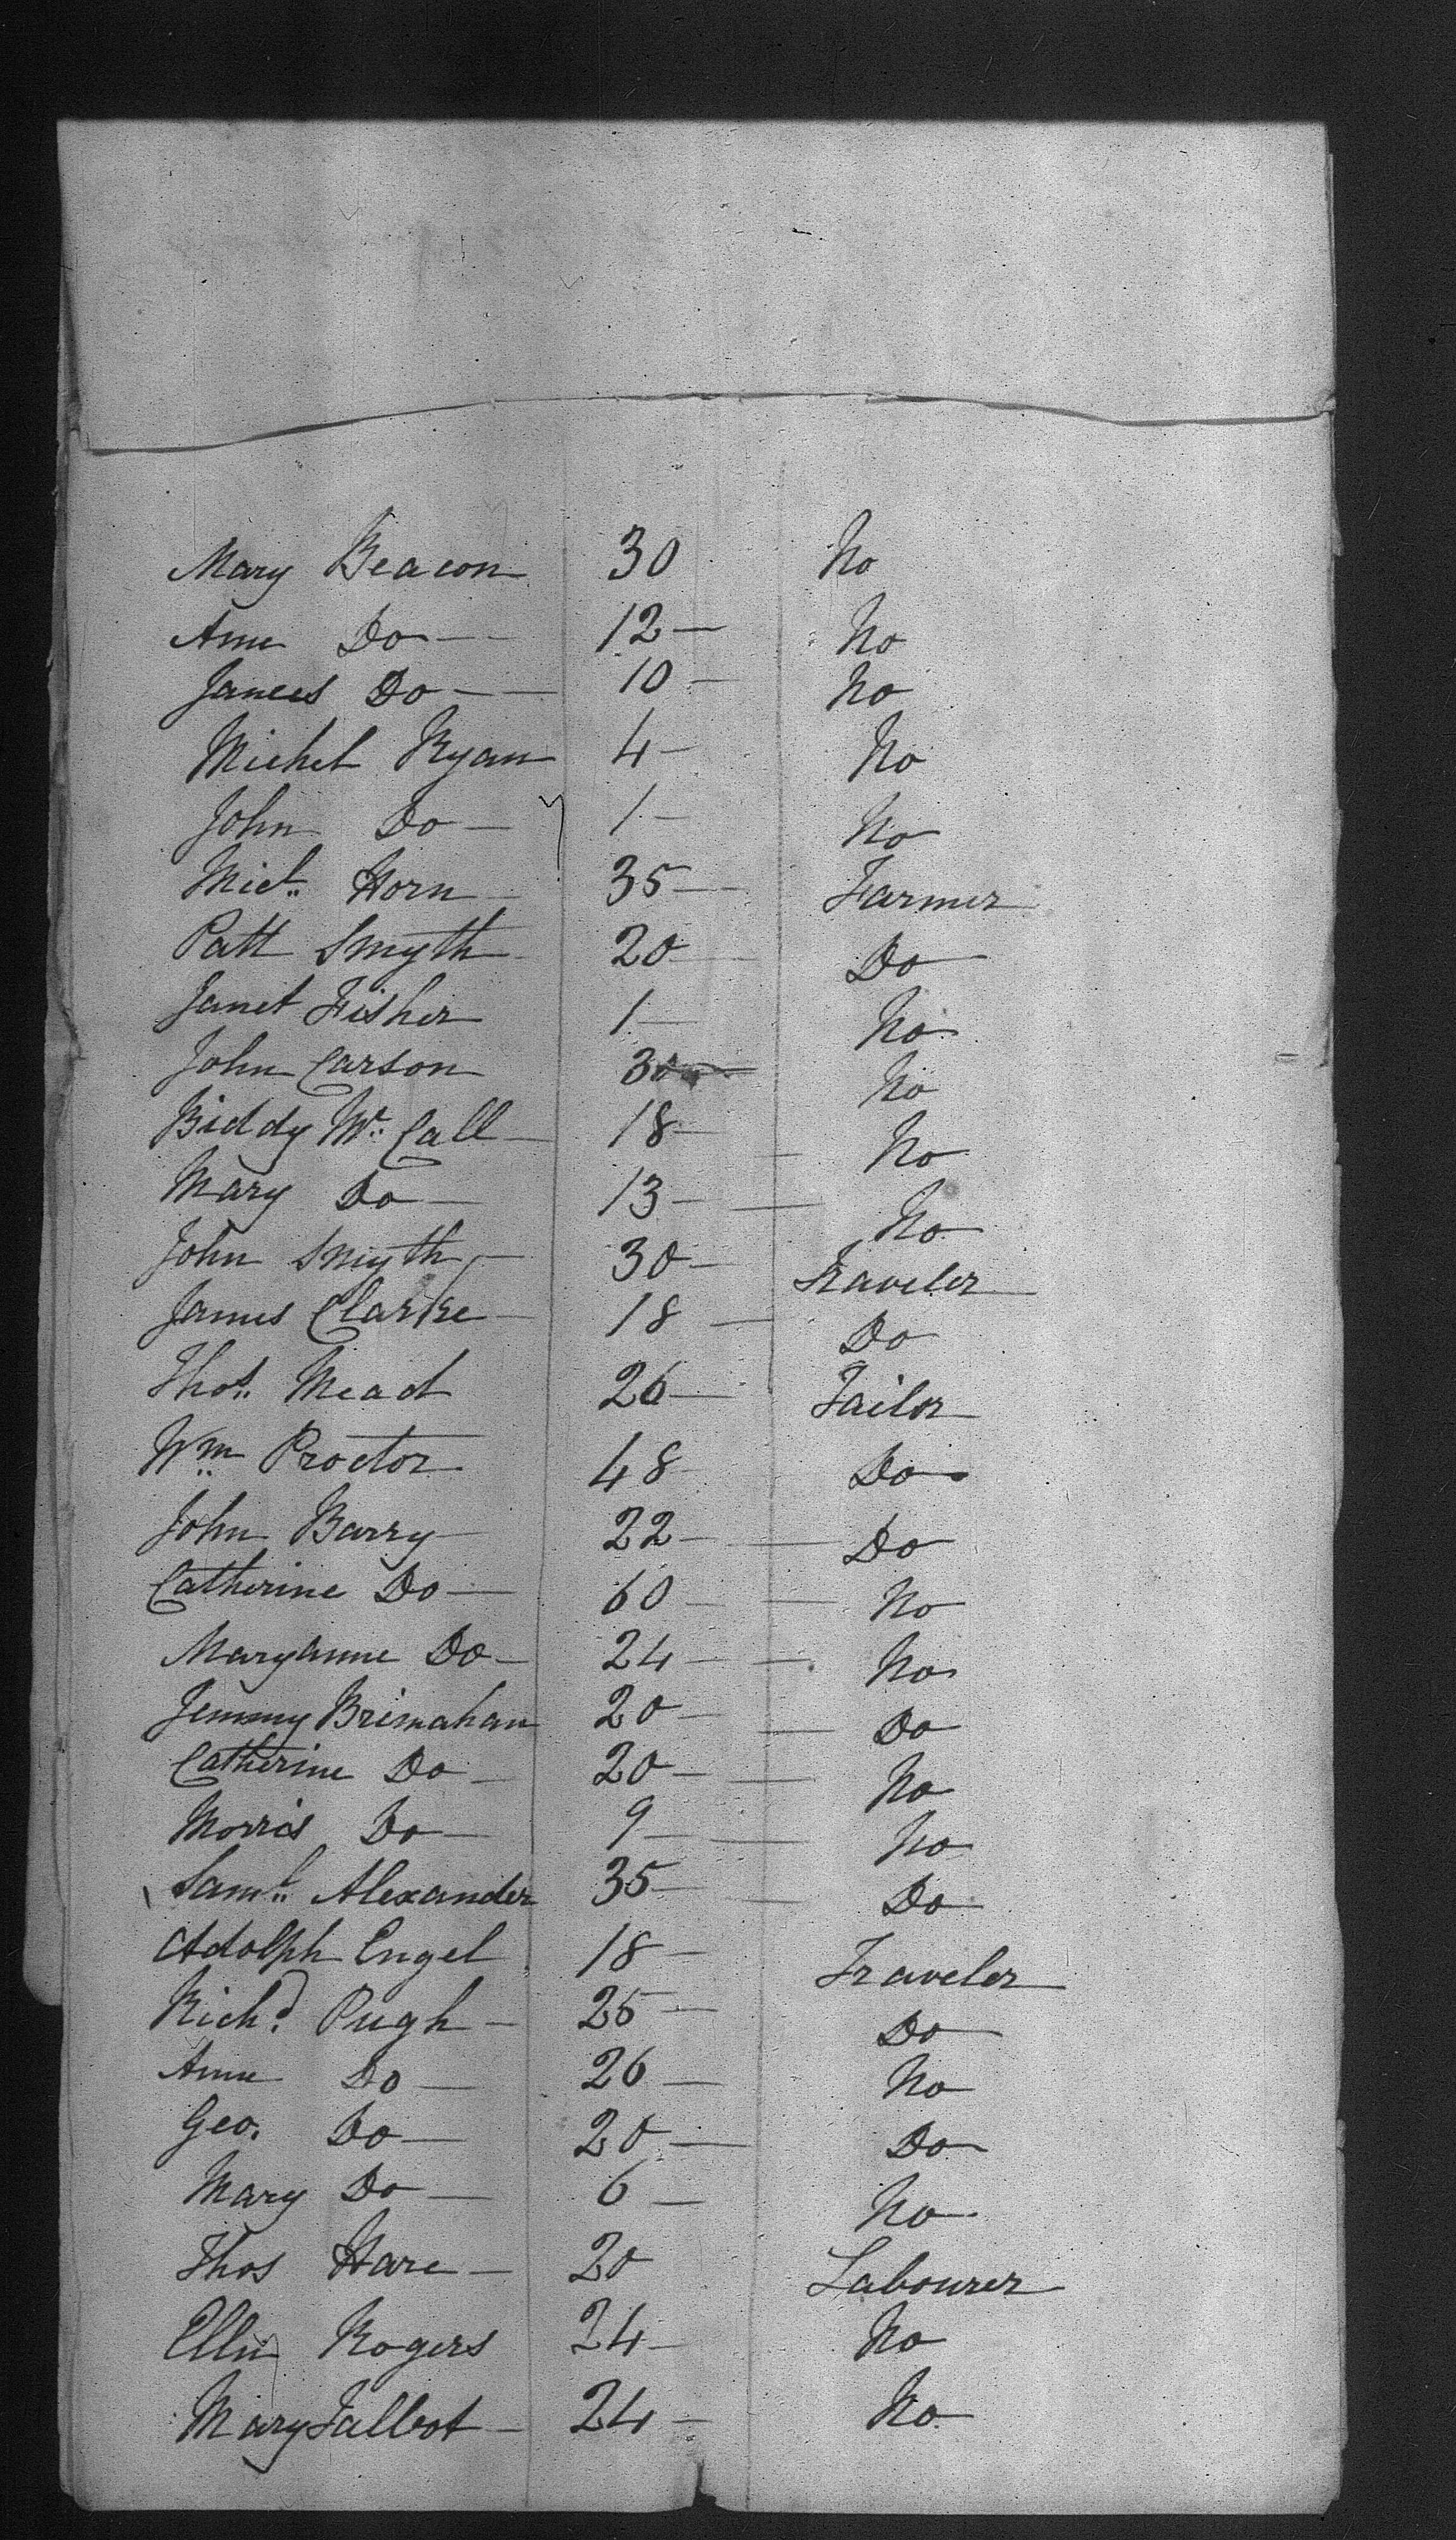 Mary Beacon 30 No
Ann Do 12 No
James Do 10 No
Michel Ryan 4 No
John Do 1 No
Micl. Horn 35 Farmer
Patt Smyth 20 Do
Janet Fisher 1 No
John Carson 30 No
Biddy Mc. Call 18 No
Mary Do 13 No
John Smyth 30 Traveler
James Clarke 18 Do
Thos. Mead 26 Tailor
Wm Proctor 48 Do
John Barry 22 Do
Catherine Do 60 No
Maryanne Do 24 No
Jemmy Brimahan 20 Do
Catherine Do 20 No
Morris Do 9 No
Saml. Alexander 35 Do
Adolph Engel 18 Traveler
Richd. Pugh 25 Do
Ann Do 26 No
Geo. Do 20 Do
Mary Do 6 No
Thos Hare 20 Labourer
Ellin Rogers 24 No
Mary Talbot 24 No